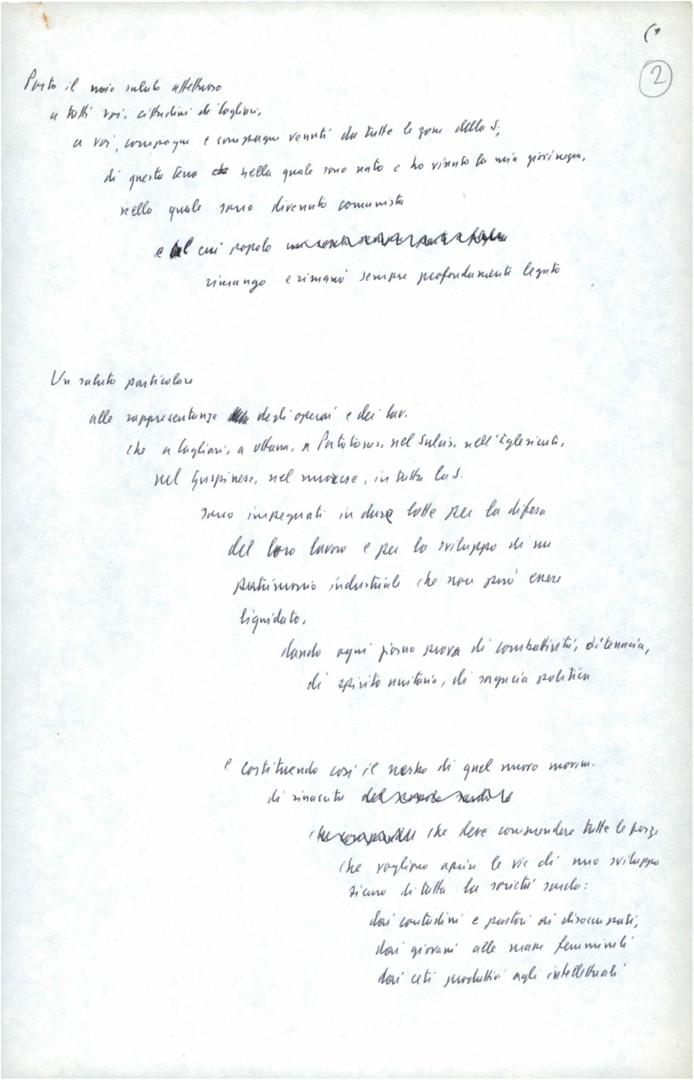 2
Porto il mio saluto affettuoso
a tutti voi, cittadini di Cagliari,
a voi, compagne e compagni venuti da tutte le zone della S,
di questa terra nella quale sono nato e ho vissuto la mia giovinezza,
nella quale sono divenuto comunista
e al cui popolo
rimango e rimarrò sempre profondamente legato
Un saluto particolare
alle rappresentanze degli operai e dei lav.
che a Cagliari, a Ottana, a Portotorres, nel Sulcis, nell'Iglesiente,
nel Guspinese, nel nuorese, in tutta la S.
sono impegnati in dure lotte per la difesa
del loro lavoro e per lo sviluppo di un
patrimonio industriale che non può essere
liquidato,
dando ogni giorno prova di combattività, di tenacia,
di spirito unitario, di sagacia politica
e costituendo così il nerbo di quel nuovo movim.
di rinascita
che deve comprendere tutte le forze
che vogliono aprire le vie di uno sviluppo
sicuro di tutta la società sarda:
dai contadini e pastori ai disoccupati,
dai giovani alle masse femminili
dai ceti produttivi agli intellettuali